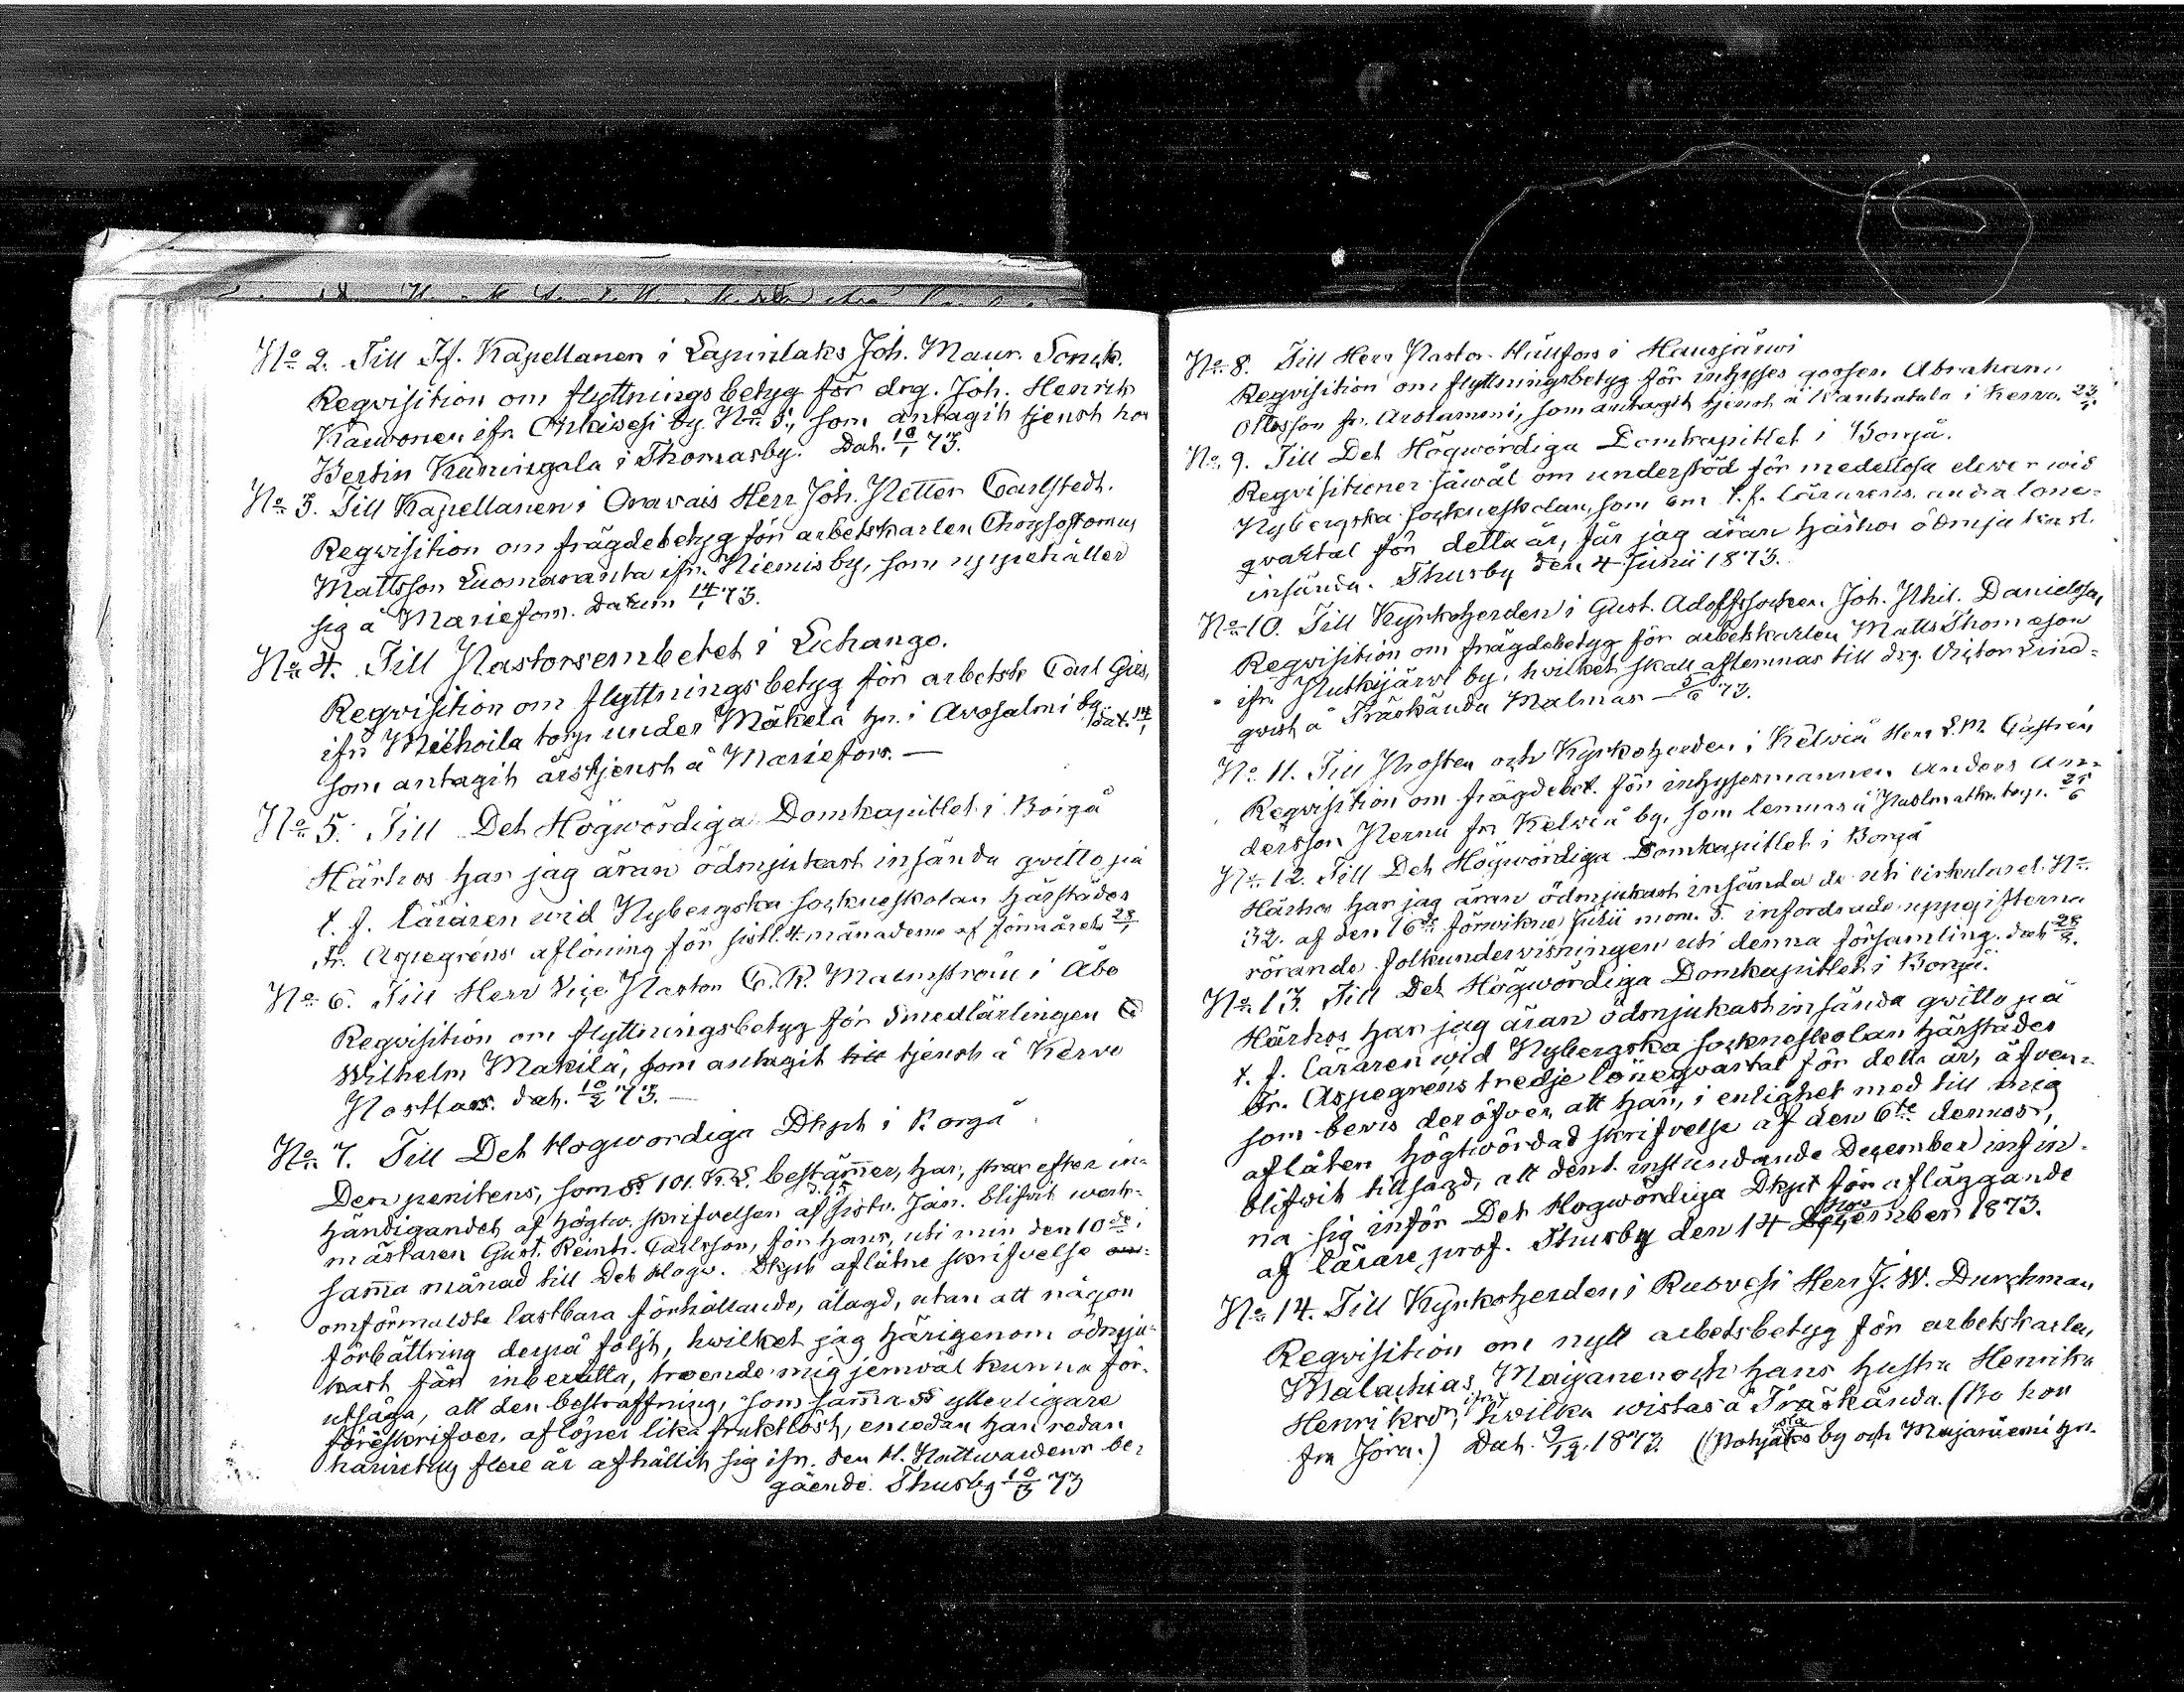 No 2. Till Tf. Kapellanen i Lapinlaks Joh. Maur. Sonck.
Reqvisition om flyttningsbetyg för drg. Joh. Henrik
Kauvonen ifn. Onkivesi by No 5, som antagit tjenst hos
Bertin Kuningala i Thomasby. Dat. 10/1 73.
No 3. Till Kapellanen i Oravais Herr Joh. Petter Carlstedt.
Reqvisition om frägdebetyg för arbetskarlen Chrysostomus
Mattsson Luomaranta ifn. Niemis by, som uppehåller
sig å Mariefors. Datum 14/1 73.
No 4. Till Pastorsembetet i Lehango.
Reqvisition om flyttningsbetyg för arbetsk. Carl Gust.
ifn Meihoila torp under Mäkelä hn. i Avosalmi by
som antagit årstjenst å Mariefors. — Dat. 14/1
No 5. Till Det Högwördiga Domkapitlet i Borgå
Härhos har jag äran ödmjukast insända qwitto på
t. f. läraren wid Nybergska sockneskolan härstädes
Fr. Aspegrens aflöning för sistl. 4 månaderne af förra året 28/1
No 6. Till Herr Vice Pastor C. R. Malmström i Åbo
Reqvisition om flyttningsbetyg för Smedlärlingen G
Wilhelm Makila, som antagit till tjenst å Kervo
Nosttars. dat. 10/2 73. —
No 7. Till Det Högwördiga Dkpt i Borgå
Den penitens, som §§ 101. K.L. bestämmer, har, strax efter in-
händigandet af högtw. skrifvelsen af d. 15 sistv. Jan. blifvit werk-
mästaren Gust. Reinh. Carlsson, för hans, uti min den 10de i
samma månad till Det Högw. Dkpt aflåtne skrifvelse om-
omförmälde lastbara förhållande, ålagd, utan att någon
förbättring derpå följt, hwilket jag härigenom ödmju-
kast får inberätta, troende mig jemväl kunna för-
utsäga, att den bestraffning, som samma § ytterligare
föreskrifver, aflöper lika fruktlöst, emedan han redan
flere år afhållit sig ifn. den H. Nattwardens be-
gående. Thusby 10/3 73
No 8. Till Herr Pastor Hällfors i Hausjärwi
Reqvisition om flyttningsbetyg för inhyses gossen Abraham
Ottosson fr. Arolammi, som antagit tjenst å Wanhatalo i Kervo. 23/4
No 9. Till Det Högwördiga Domkapitlet i Borgå.
Reqvisitioner såwäl om understöd för medellösa elever wid
Nybergska sockneskolan, som om t. f. lärarens andra löne-
qvartal för detta år, får jag äran härhos ödmjukast
insända. Thusby den 4 Junii 1873.
No 10. Till Kyrkoherden i Gust. Adolfs socken Joh. Phil. Danielson,
Reqvisition om frägdebetyg för arbetskarlen Matts Thomasson
ifn. Putkijärwi by, hwilket skall aflemnas till drg. Victor Lind-
qwist å Träskända Malmar — 5/6 73.
No 11. Till Prosten och Kyrkoherden i Kelwiå Herr L.M. Castrén
Reqvisition om frägdebet. för inhysesmannen Anders An-
dersson Pernu fr. Kelwiå by, som lemnas å torp. 25/6
No 12. Till Det Högwördiga Domkapitlet i Borgå
Härhos har jag äran ödmjukast insända de uti cirkuläret No
32. af den 16de förvikne Julii mom. 5. infordrade uppgifterna
rörande folkunderwisningen uti denna församling. dat 28/8.
No 13. Till Det Högwördiga Domkapitlet i Borgå.
Härhos har jag äran ödmjukast insända qwitto på
t. f. läraren wid Nybergska sockneskolan härstädes
Fr. Aspegrens tredje löneqvartal för detta år, äfven-
som bevis deröfver, att han, i enlighet med till mig
aflåten högtwördad skrifvelse af den 6te dennes,
blifwit tillsagd, att den 1. instundande December infin-
na sig inför Det Högwördiga Dkpt för afläggande
af lärare prof. Thusby den 14 Nov 1873.
No 14. Till Kyrkoherden i Ruovesi Herr J. W. Durchman
Reqvisition om nytt arbetsbetyg för arbetskarlen
Malachias Maijanen och hans hustru Henrika
Henriksdr, hwilka wistas å Träskända. (Bo hon
fr. Jöra.) Dat. 9/12 1873. (Pohja by och Majaniemi hn.